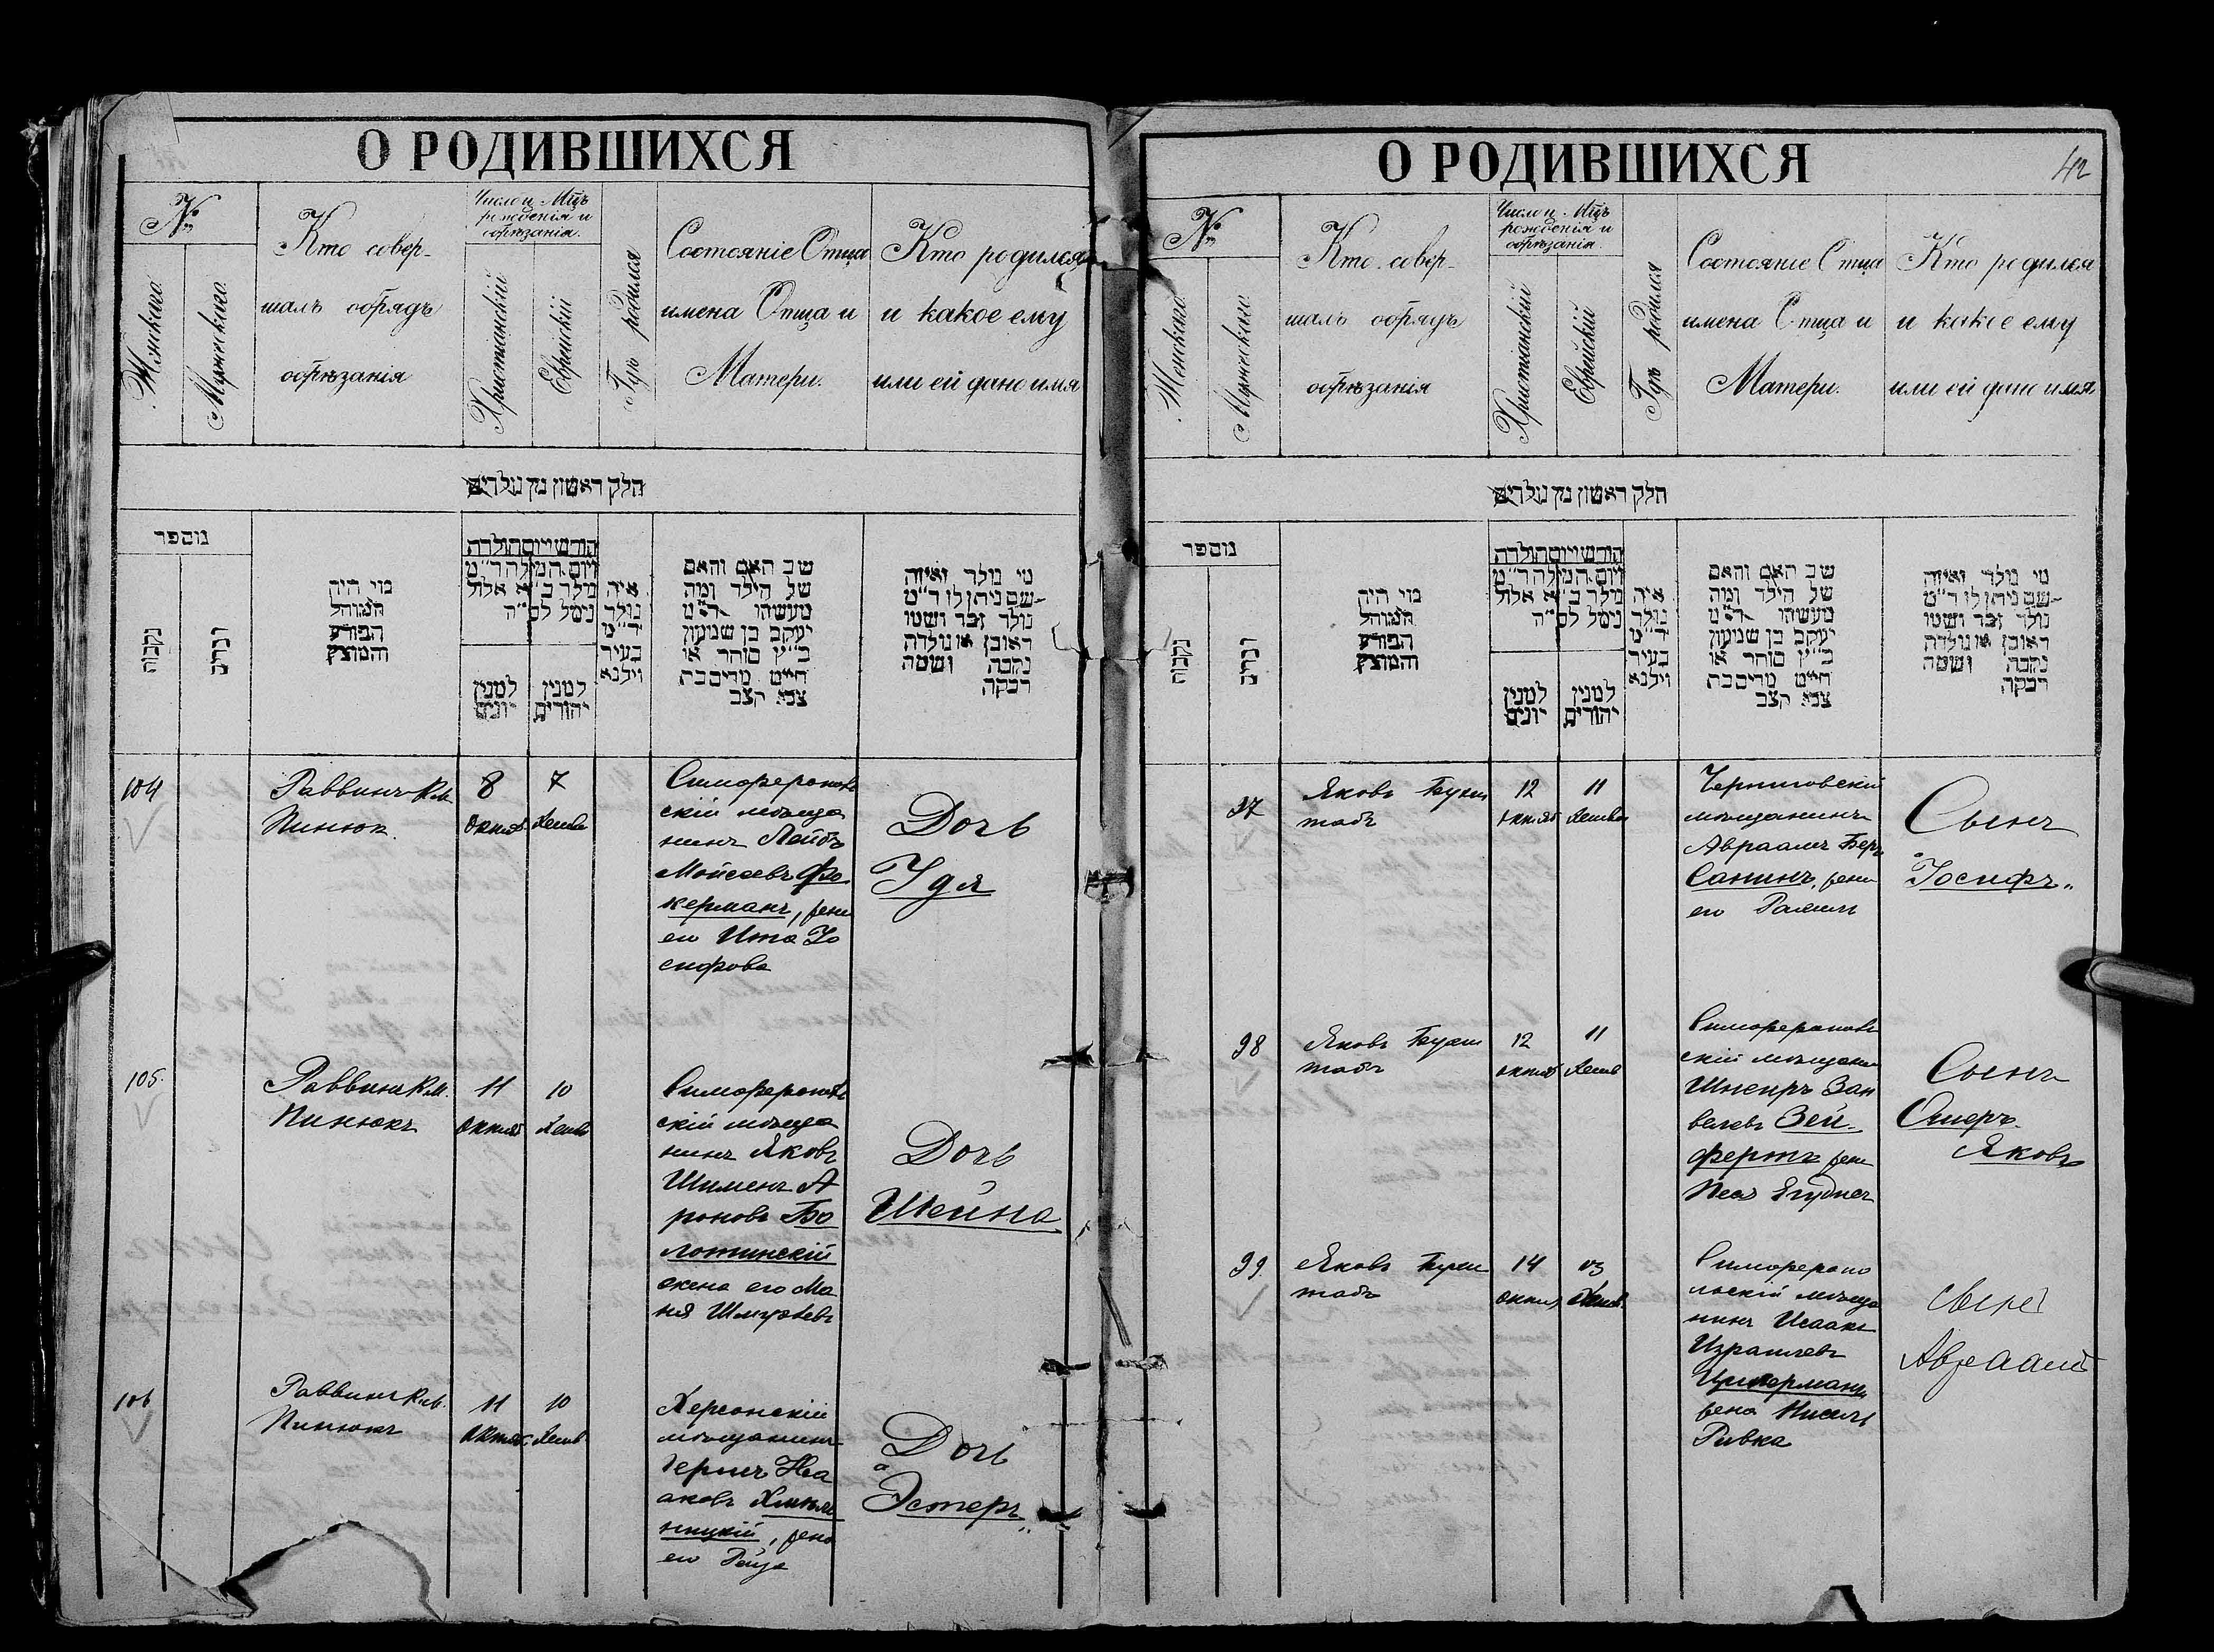 О РОДИВШИХСЯ
№
Женскаго.
Мужескаго.
Кто совер-
шалъ обрядъ
обрѣзанія
Число и Мѣцъ
рожденія и
обрѣзанія.
Христіанскій
Еврейскій
Гдѣ родился
Состояніе Отца
имена Отца и
Матери.
Кто родился
и какое ему
или ей дано имя
חלק ראשון מן נולדים
נומפר
נקבות
זכרים
מי היה
המוהל
הפורע
והמוצץ
חודש ויום הולדת
ויום המילה ר״מ
נולד ב״א אלול
נימל לס״ה
למנין
יונים
למנין
יהודים
איה
נולד
ד״מ
בעיר
וילנא
שב האם והאם
של הילד ומה
מעשהו ד״מ
יעקב בן שמעון
כ״ץ סוחר או
חייט מרים בת
צבי קצב
מי נולד ואיזה
שם ניתן לו ד״מ
נולד זכר ושמו
ראובן או נולדת
נקבה ושמה
רבקה
104
Раввинъ К.М.
Пинюк.
8
Октяб.
7
Хешв
Симферополь
скій мѣща
нинъ Лейбъ
Мойсеевъ Фо
керманъ, жена
его Ита Іо
сифова
Дочь
Удя
105.
Раввинъ К.М.
Пинюкъ
11
Октяб
10
Хешв
Симферополь
скій мѣща
нинъ Яковъ
Шименъ А
роновъ Бо
лотинскій
жена его Ма
ня Шмулевъ
Дочь
Шейна
106
Раввинъ К.М.
Пинюкъ
11
Октяб.
10
Хешв
Херсонскій
мѣщанинъ
Герша Иса
аковъ
ницкій, жена
его Рейза
Дочь
Эстеръ
О РОДИВШИХСЯ
42
№
Женскаго.
Мужескаго.
Кто совер-
шалъ обрядъ
обрѣзанія
Число и Мѣцъ
рожденія и
обрѣзанія.
Христіанскій
Еврейскій
Гдѣ родился
Состояніе Отца
имена Отца и
Матери.
Кто родился
и какое ему
или ей дано имя
חלק ראשון מן נולדים
נומפר
נקבות
זכרים
מי היה
המוהל
הפורע
והמוצץ
חודש ויום הולדת
ויום המילה ר״מ
נולד ב״א אלול
נימל לס״ה
למנין
יונים
למנין
יהודים
איה
נולד
ד״מ
בעיר
וילנא
שב האם והאם
של הילד ומה
מעשהו ד״מ
יעקב בן שמעון
כ״ץ סוחר או
חייט מרים בת
צבי קצב
מי נולד ואיזה
שם ניתן לו ד״מ
נולד זכר ושמו
ראובן או נולדת
נקבה ושמה
רבקה
97
Яковъ Бухш
табъ
12
октяб
11
Хешва
Черниговскій
мѣщанинъ
Авраамъ Беръ
Санинъ, жена
его Рахиль
Сынъ
Іосифъ
98
Яковъ Бухш
табъ
12
октяб
11
Хешв
Симферополь
скій мѣщани
Шнеиръ Зан
велевъ Зей-
фертъ жена
Песя
Сынъ
Омеръ-
Яковъ
99.
Яковъ Бухш
табъ
14
октяб
13
Хешв.
Симферопо
льскій мѣща
нинъ Исаакъ
Израилевъ
Цукерманъ
жена
Ривка
Сынъ
Авраамъ